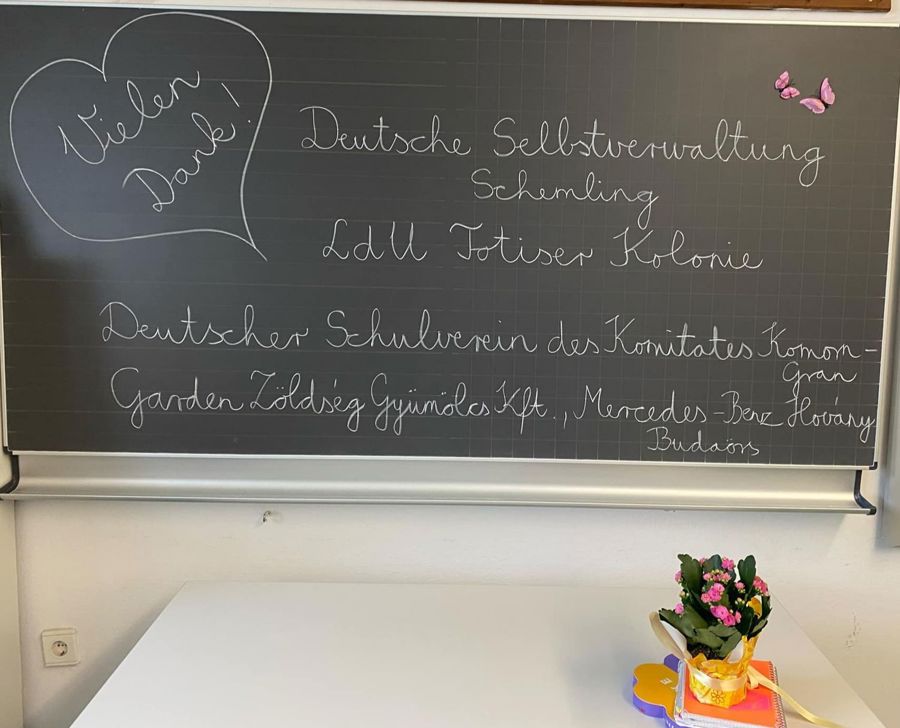 Vielen
Dank!
Deutsche Selbstverwaltung
Schemling
LdU Totiser Kolonie
Deutscher Schulverein des Komitates Komorn-
Gran
Garden Zöldség Gyümölcs Kft., Mercedes-Benz Hovány
Budaörs